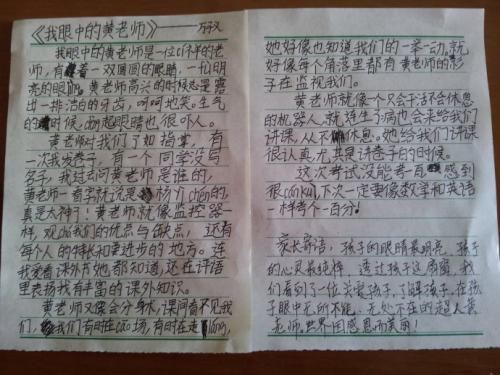 《我眼中的黄老师》——
我眼中的黄老师是一位
师,有着一双圆圆的眼睛,一张明
亮的眼
出一排洁白的牙齿,呵呵地笑。生气
的时候,眼睛也很吓人。
黄老师对我们了如指掌,有
一次我发卷子,有一个同学没写
名字,我过去问黄老师是谁的,
黄老师一看字就说是杨介chén的,
真是太神了!黄老师就像监控器一
样,观chá我们的优点与缺点,还有
每个人的特长和要进步的地方。连
我爱看课外书她都知道,还在评语
里表扬我有丰富的课外知识。
黄老师又像会分身术,课间看不见我
们,我们有时在cāo场,有时在走láng,
她好像也知道我们的一举一动。就
好像每个角落里都有黄老师的影
子在监视我们。
黄老师就像个只会干活不会休息
的机器人,就连生了病也会来给我们
讲课,从不休息。她给我们讲课
很认真,尤其是讲卷子的时候。
这次考试没能考一百感到
很cán kuì,下次一定要像数学和英语
一样考一百分!
家长寄语:孩子的眼睛最明亮,孩子
的心灵最纯粹,透过孩子这扇窗,我
们看到了一位关爱孩子,了解孩子,在孩
子眼中无所不能,无处不在的超人黄
老师,世界因感恩而美丽!